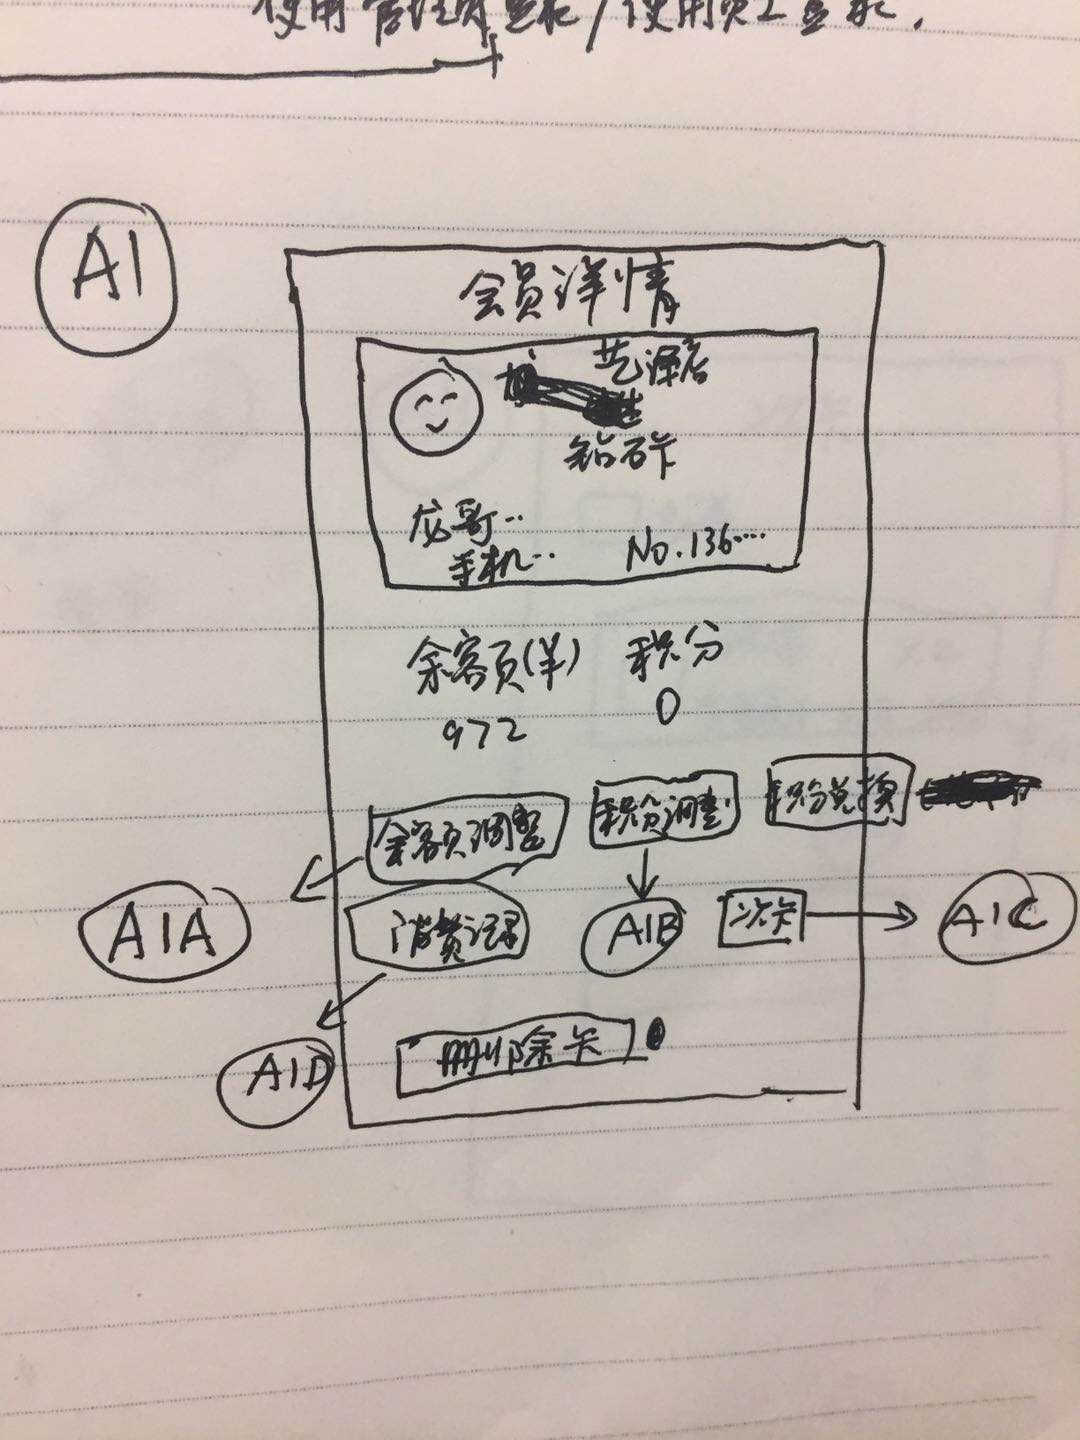 使用管理员登录/使用员工登录.
A1
会员详情
艺泽店
钻石卡
龙哥..
手机..
No.136....
余额(¥) 积分
972 0
余额调整 积分调整 积分兑换
A1A 消费记录 A1B 次卡 A1C
A1D 删除卡